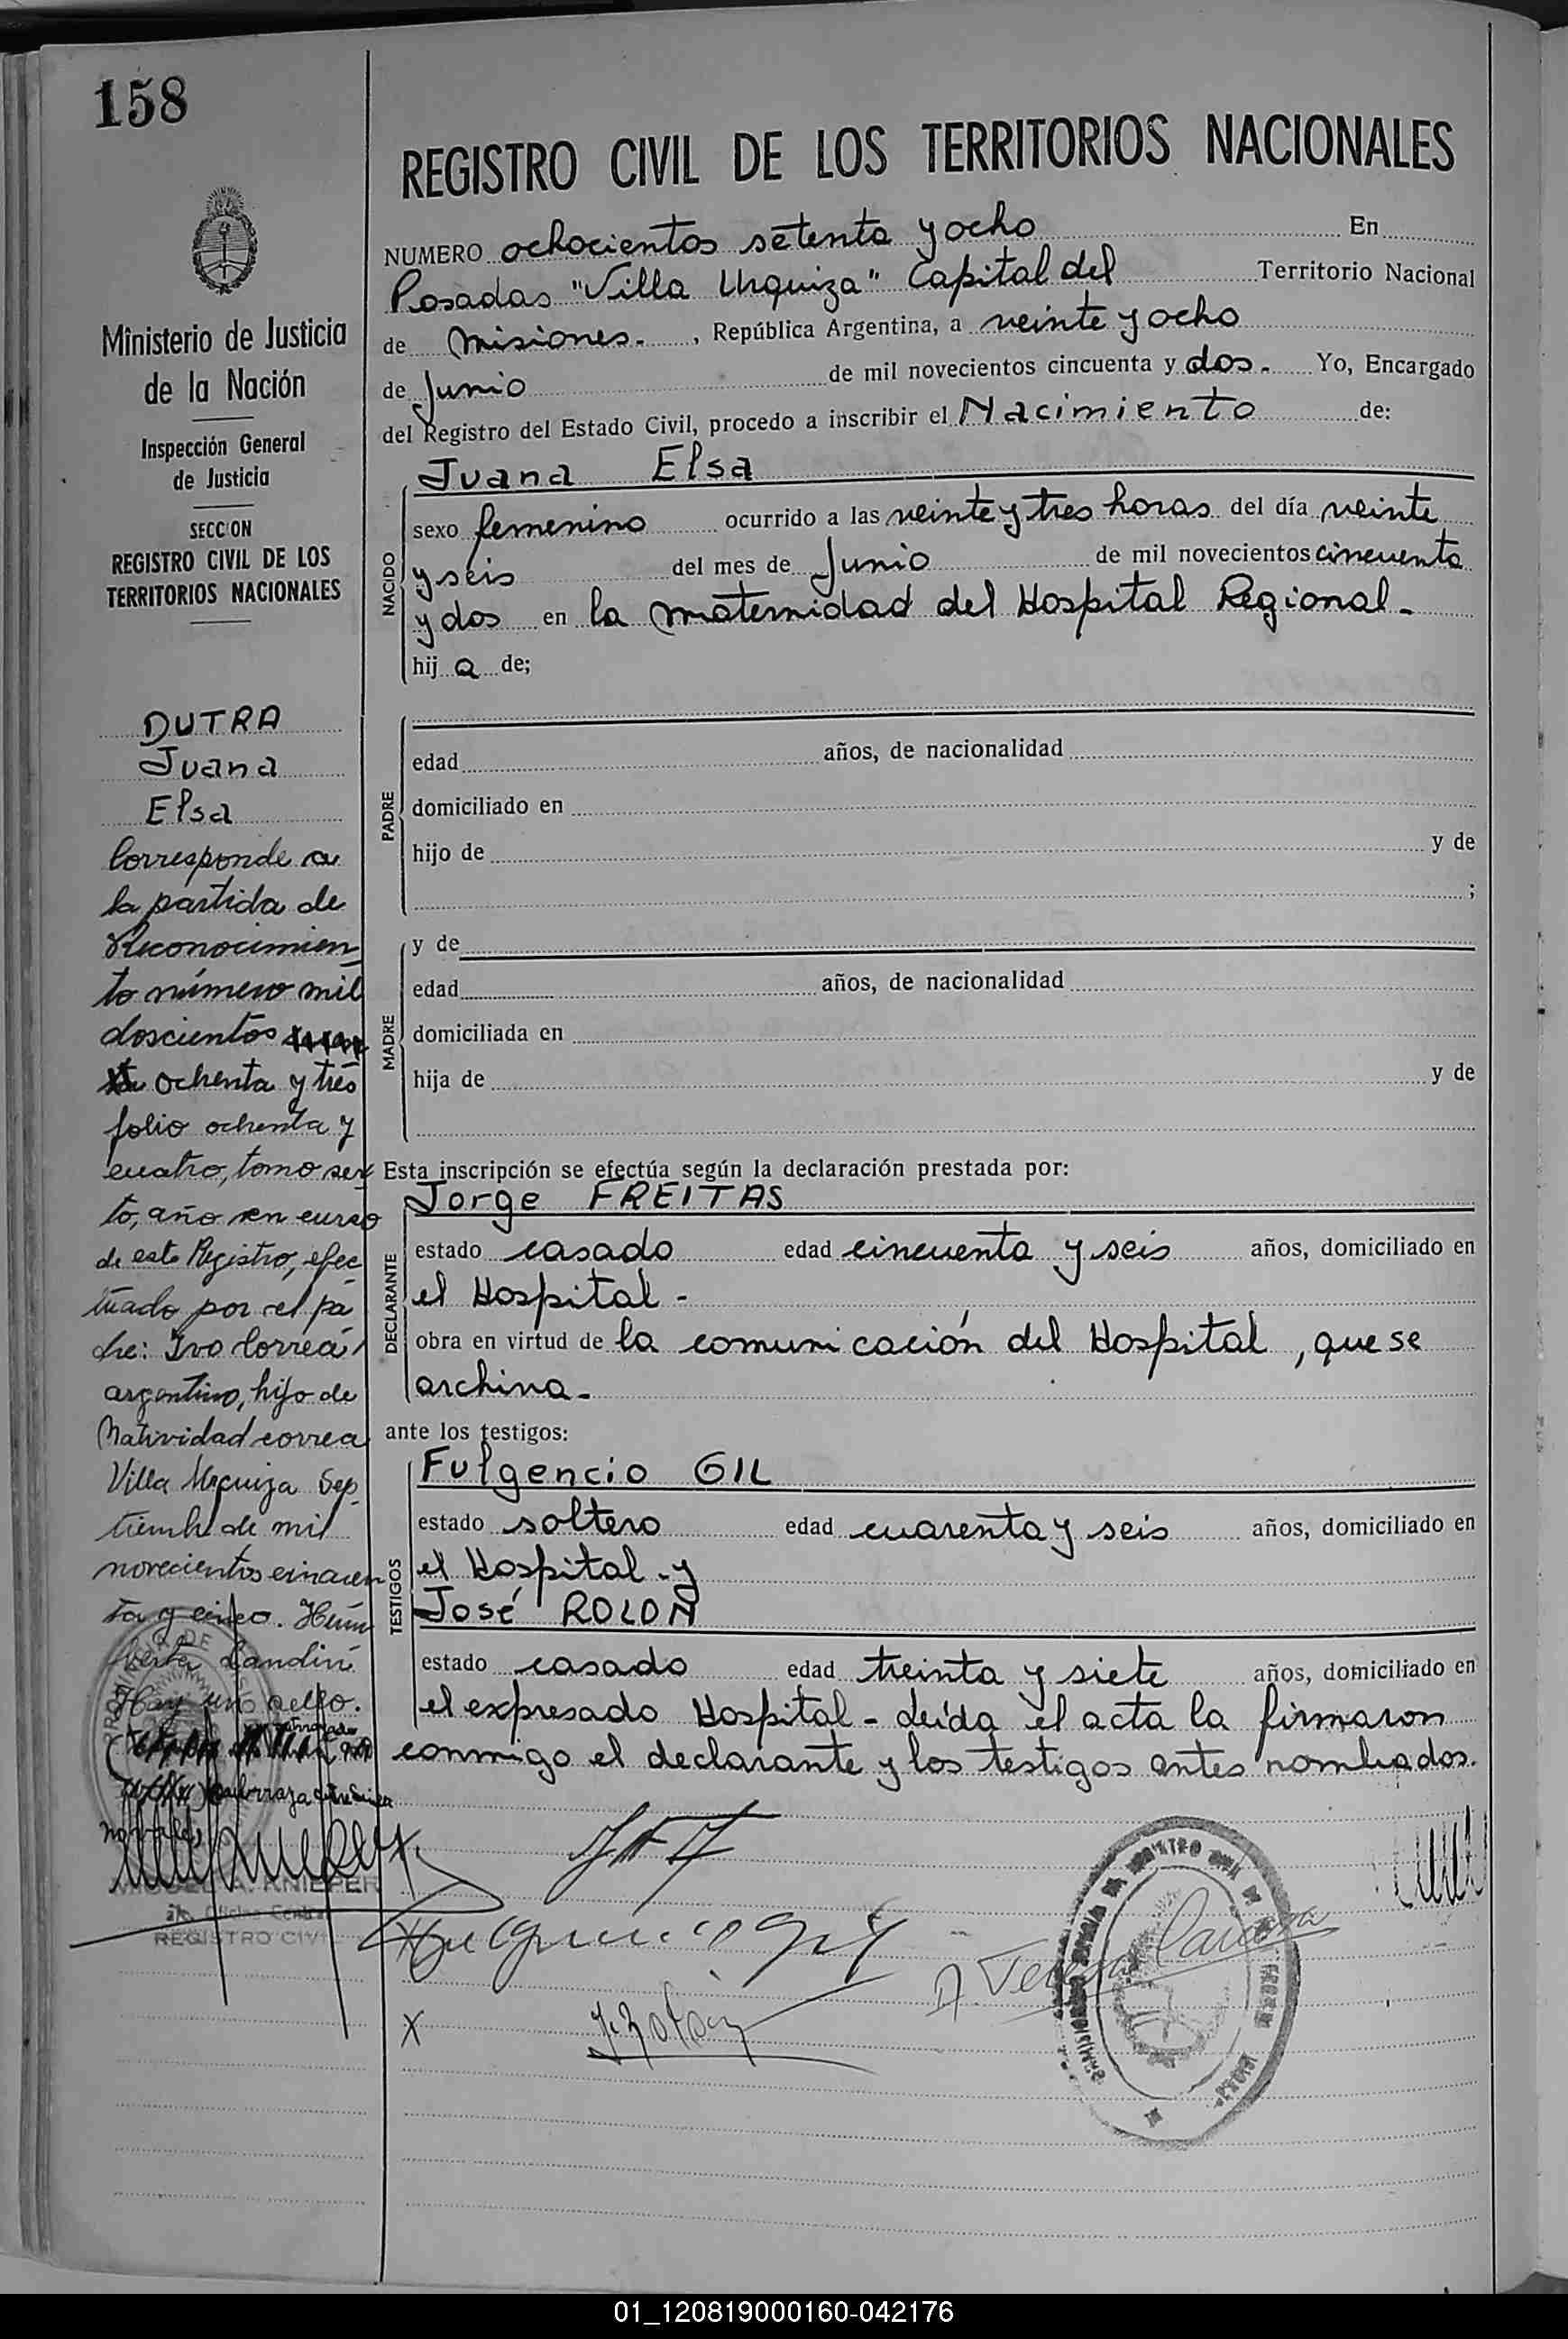 158
REGISTRO CIVIL DE LOS TERRITORIOS NACIONALES
Ministerio de Justicia
de la Nación
Inspección General
de Justicia
SECCION
REGISTRO CIVIL DE LOS
TERRITORIOS NACIONALES
DUTRA
Juana
Elsa
Corresponde a
la partida de
Reconocimien
to número mil
doscientos
ochenta y tres
folio ochenta y
cuatro, tomo sex
to, año en curso
de este Registro, efec
tuado por el pa
dre: Ivo Correa
argentino, hijo de
Natividad correa
Villa Urquiza Sep
tiembre de mil
novecientos cincuen
ta y cinco. Hum
berto Landini
Hay un sello.
MIGUEL A. KNIEPER
Oficina Central
REGISTRO CIVIL
NUMERO ochocientos setenta y ocho En
Posadas "Villa Urquiza" Capital del Territorio Nacional
de Misiones. , República Argentina, a veinte y ocho
de Junio de mil novecientos cincuenta y dos. Yo, Encargado
del Registro del Estado Civil, procedo a inscribir el Nacimiento de:
NACIDO
Juana Elsa
sexo femenino ocurrido a las veinte y tres horas del día veinte
y seis del mes de Junio de mil novecientos cincuenta
y dos en la maternidad del Hospital Regional-
hij a de;
PADRE
edad años, de nacionalidad
domiciliado en
hijo de y de
;
MADRE
y de
edad años, de nacionalidad
domiciliada en
hija de y de
Esta inscripción se efectúa según la declaración prestada por:
DECLARANTE
Jorge FREITAS
estado casado edad cincuenta y seis años, domiciliado en
el Hospital -
obra en virtud de la comunicación del Hospital, que se
archiva-
ante los testigos:
TESTIGOS
Fulgencio GIL
estado soltero edad cuarenta y seis años, domiciliado en
el Hospital - y
José ROLON
estado casado edad treinta y siete años, domiciliado en
el expresado Hospital - Leída el acta la firmaron
conmigo el declarante y los testigos antes nombrados.
Fulgencio Gil
J. Rolon
01_120819000160-042176